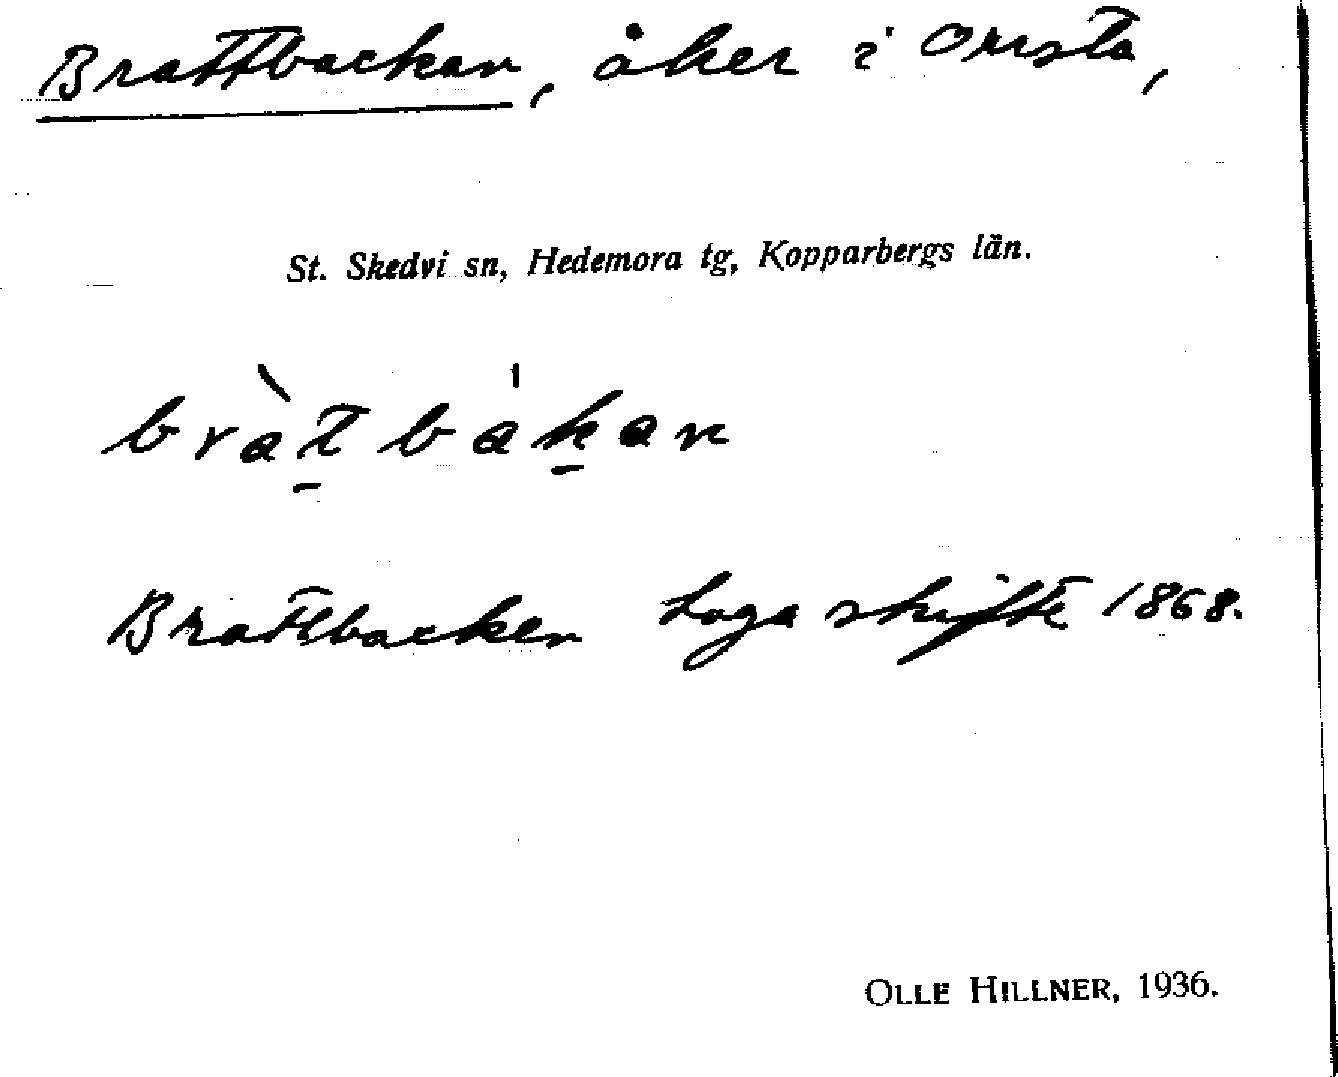 Brattbackan, åker i Onsta,
St. Skedvi sn, Hedemora tg, Kopparbergs län.
bràt̠bák̠an
Brattbacken Laga skifte 1868.
OLLE HILLNER, 1936.